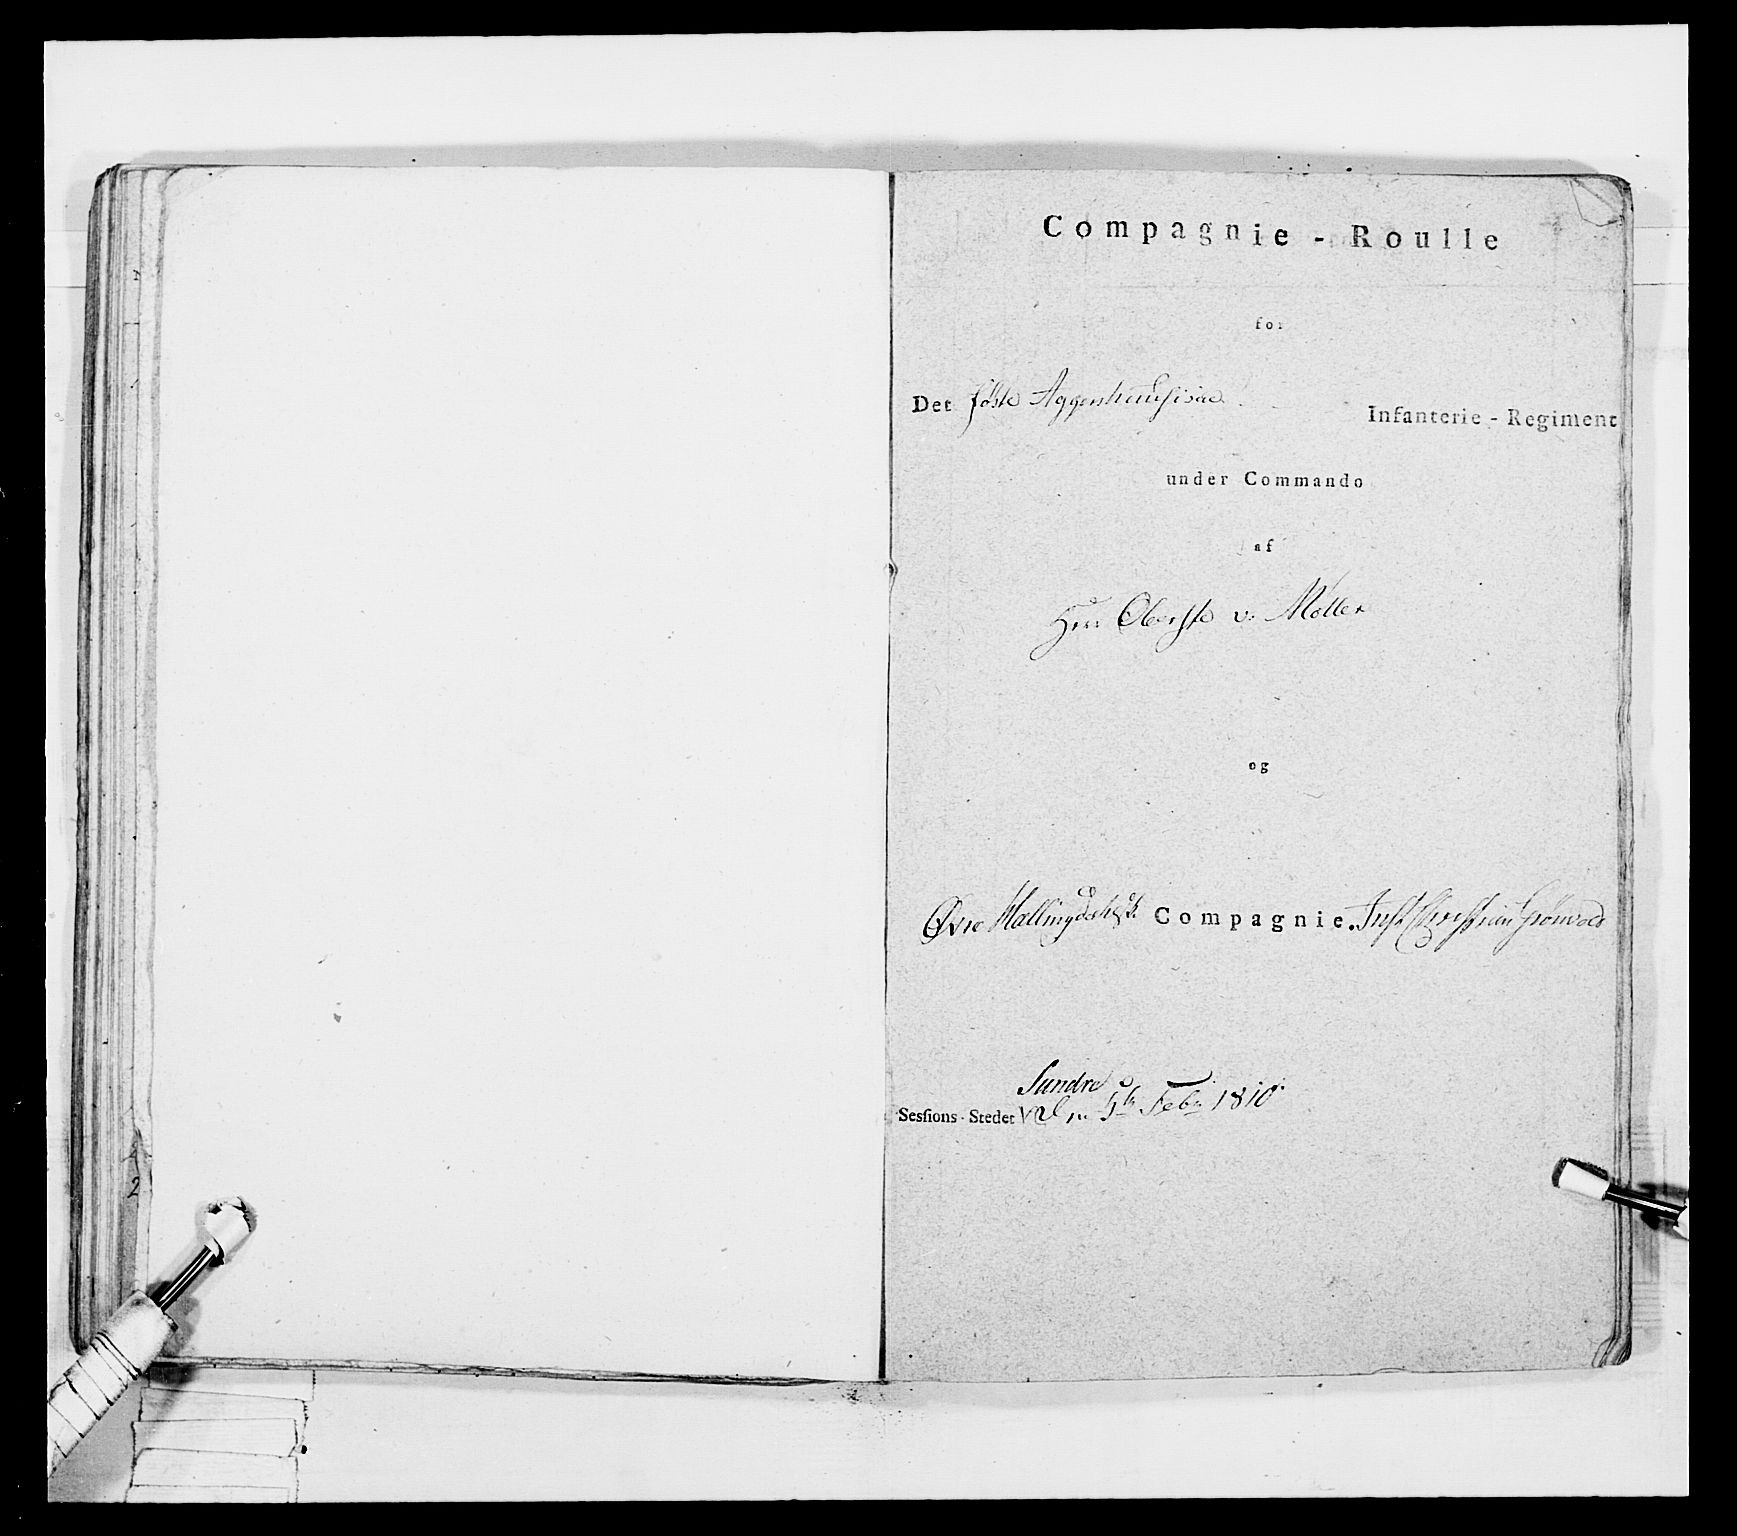 Compagnie - Roulle
for
Det føste Aggershuusiske Infanterie - Regiment
under Commando
af
Herr Oberste v. Møller
og
Øvre Hallingdalske Compagnie. Christian Grønvold
Sundre
Sessions-Stedet den 5te Febr 1810.
2